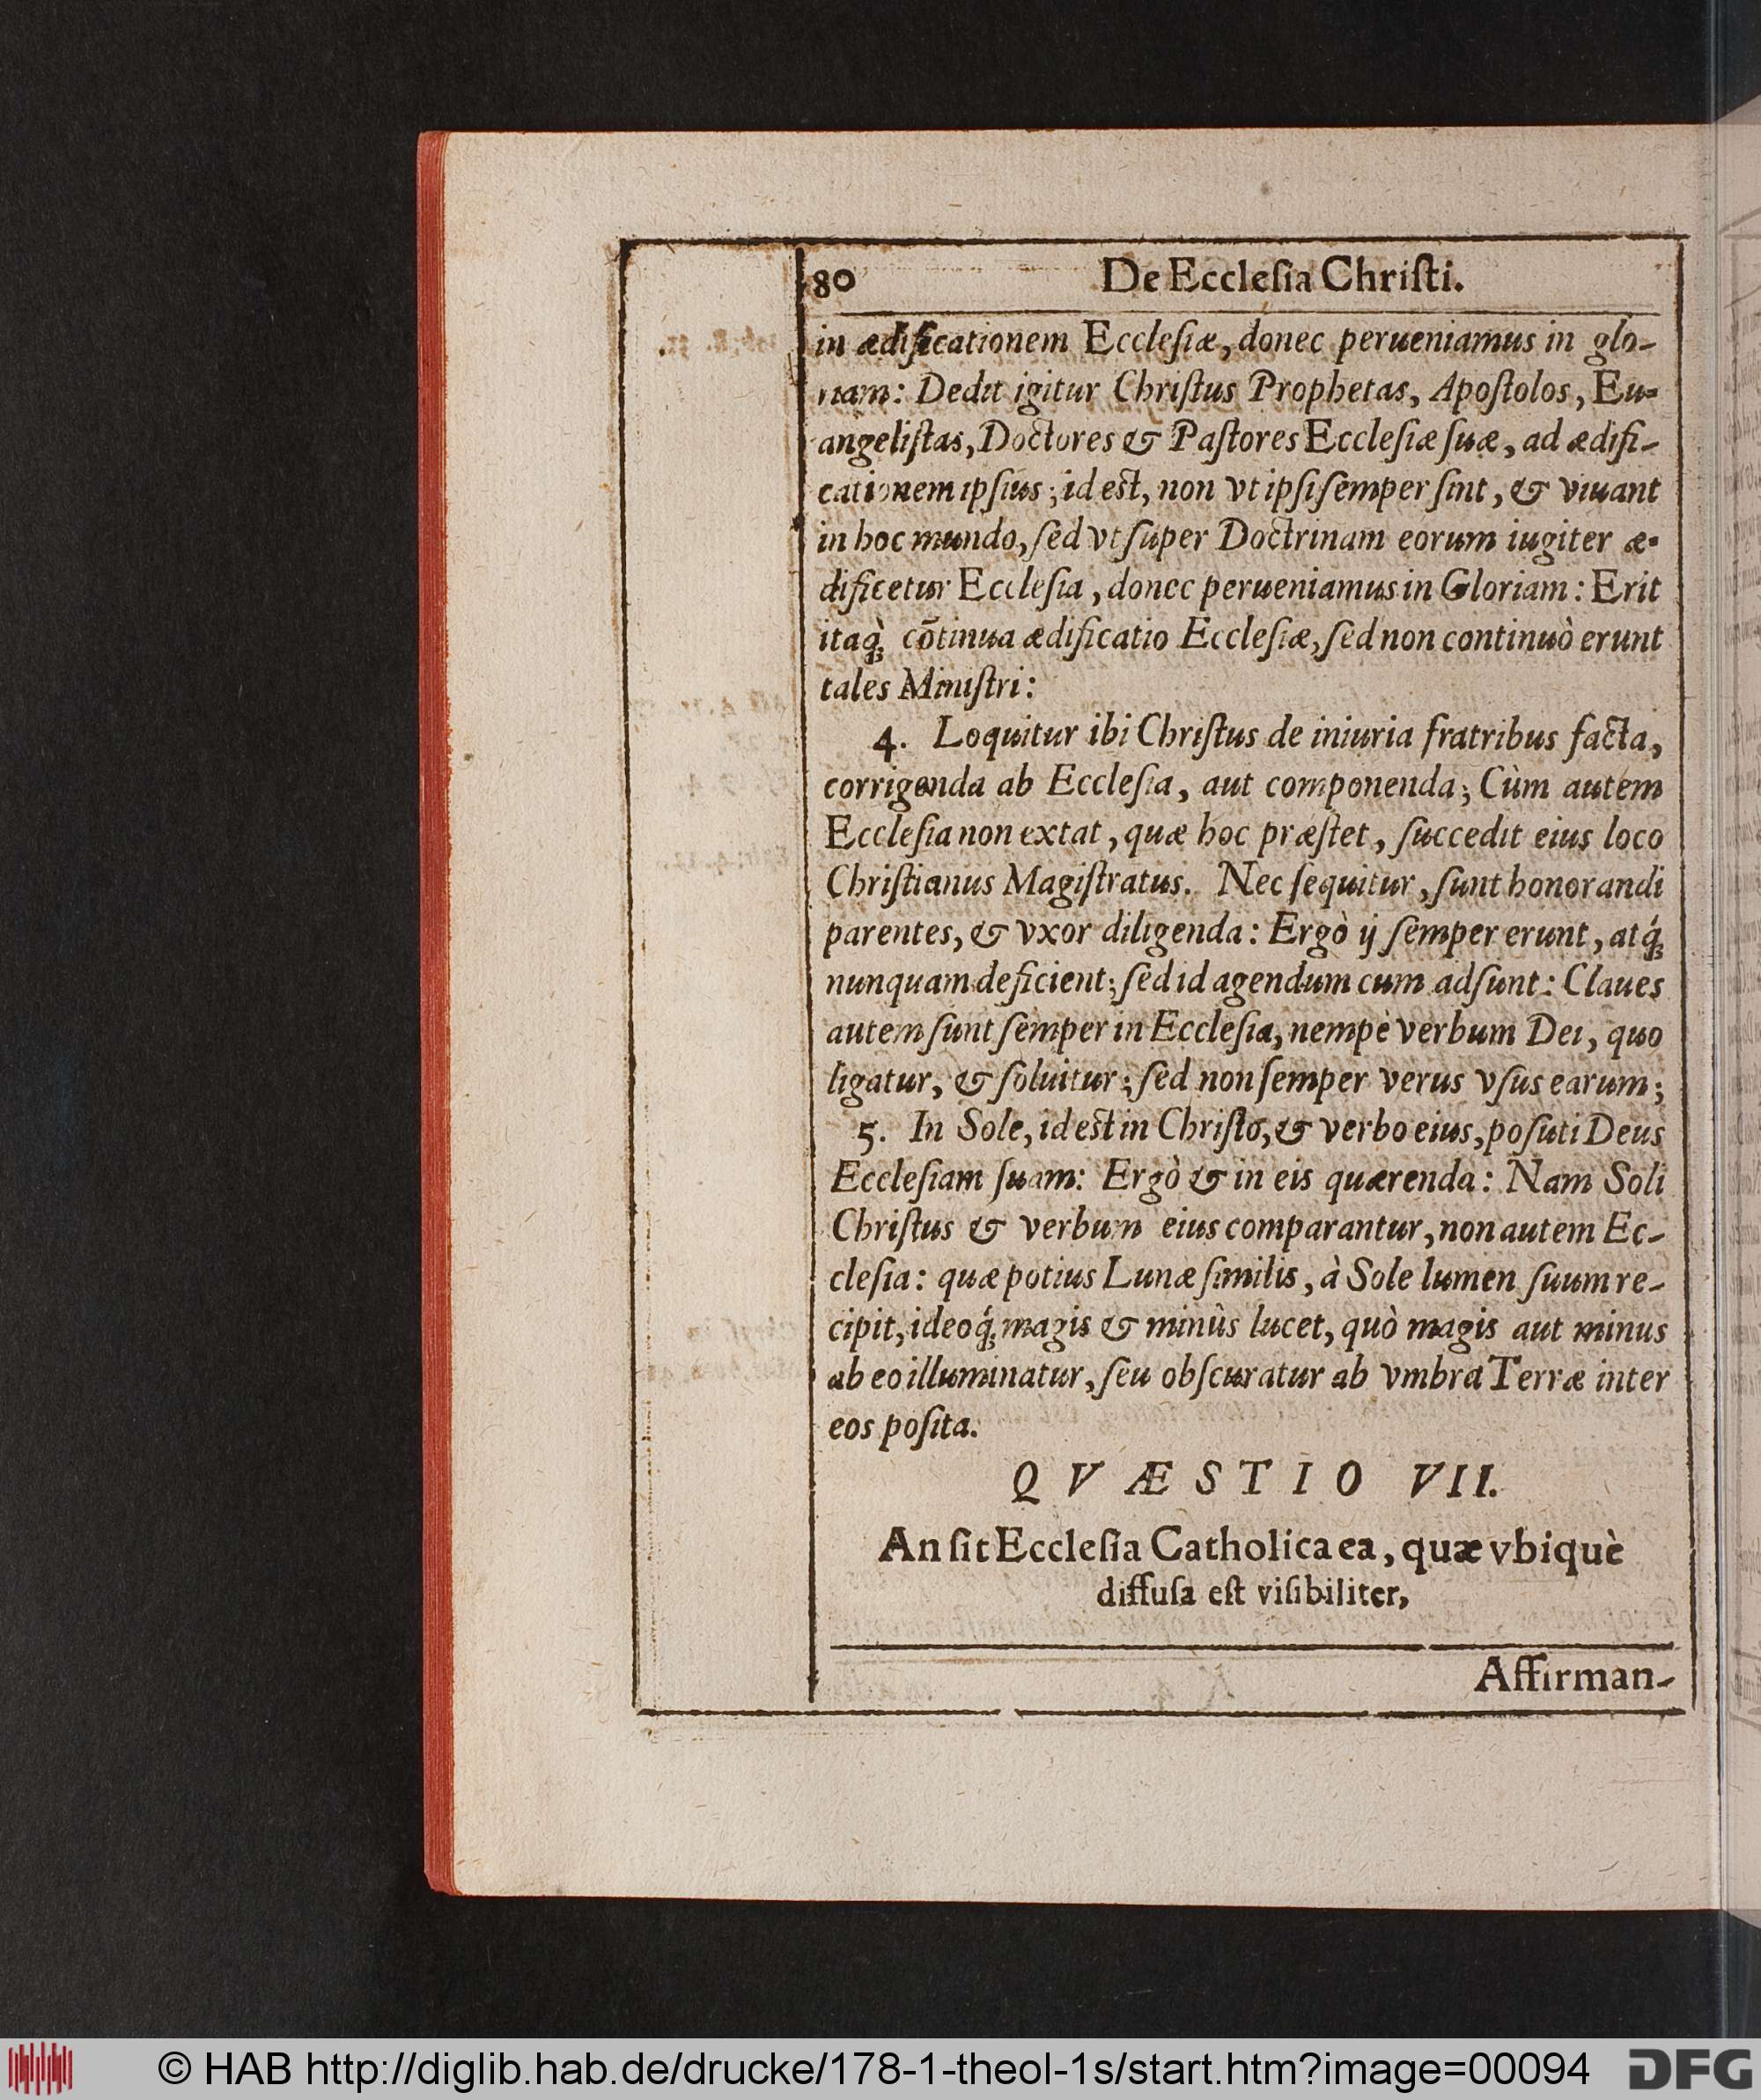 80 De Ecclesia Christi.
in ædificationem Ecclesiæ, donec perueniamus in glo-
riam: Dedit igitur Christus Prophetas, Apostolos, Eu-
angelistas, Doctores & Pastores Ecclesiæ suæ, ad ædifi-
cationem ipsius; id est, non vt ipsi semper sint, & viuant
in hoc mundo, sed vt super Doctrinam eorum iugiter æ-
dificetur Ecclesia, donec perueniamus in Gloriam: Erit
itaq́ꝫ cōtinua ædificatio Ecclesiæ, sed non continuò erunt
tales Ministri:
4. Loquitur ibi Christus de iniuria fratribus facta,
corrigenda ab Ecclesia, aut componenda; Cùm autem
Ecclesia non extat, quæ hoc præstet, succedit eius loco
Christianus Magistratus. Nec sequitur, sunt honorandi
parentes, & vxor diligenda: Ergò ij semper erunt, atq́ꝫ
nunquam deficient; sed id agendum cum adsunt: Claues
autem sunt semper in Ecclesia, nempè verbum Dei, quo
ligatur, & soluitur; sed non semper verus vsus earum;
5. In Sole, id est in Christo, & verbo eius, posuti Deus
Ecclesiam suam: Ergò & in eis quærenda: Nam Soli
Christus & verbum eius comparantur, non autem Ec-
clesia: quæ potius Lunæ similis, à Sole lumen suum re-
cipit, ideoq́ꝫ magis & minùs lucet, quò magis aut minus
ab eo illuminatur, seu obscuratur ab vmbra Terræ inter
eos posita.
QVÆSTIO VII.
An sit Ecclesia Catholica ea, quæ vbiquè
diffusa est visibiliter,
Affirman-
© HAB http://diglib.hab.de/drucke/178-1-theol-1s/start.htm?image=00094
DFG